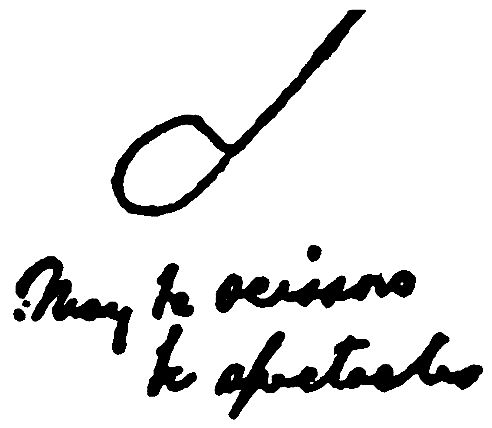 May be scissors
be spectacles